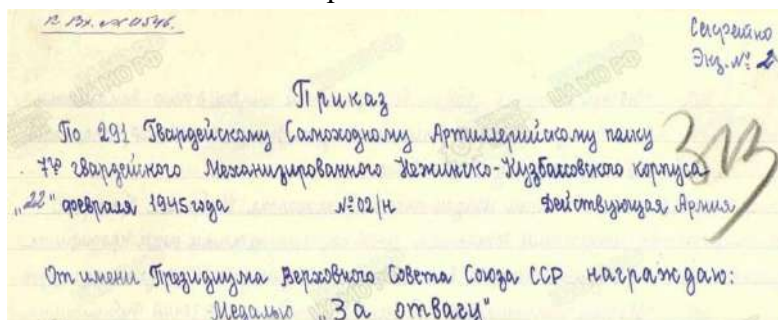 Секретно
Экз. № 2
Приказ
По 291 Гвардейскому Самоходному Артиллерийскому полку
7го гвардейского Механизированного Нежинско-Кузбассовского корпуса
"22" февраля 1945 года №02/н Действующая Армия
313
От имени Президиума Верховного Совета Союза ССР награждаю:
Медалью "За отвагу"